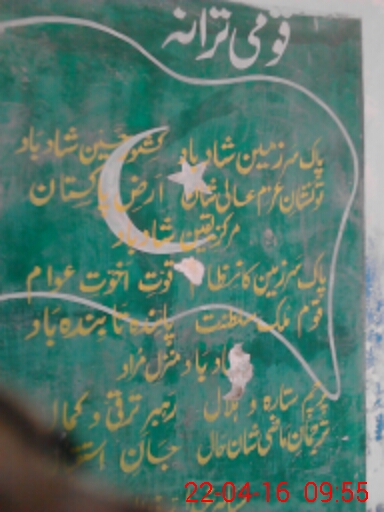 قومی ترانہ
پاک سرزمین شاد باد کشور حسین شاد باد
تو نشانِ عزم عالی شان ارضِ پاکستان
مرکز یقین شاد باد
پاک سرزمین کا نظام قوتِ اخوتِ عوام
قوم ملک سلطنت پائندہ تابندہ باد
شاد باد منزل مراد
پرچم ستارہ و ہلال رہبر ترقی و کمال
ترجمانِ ماضی شان حال جانِ
22-04-16 09:55